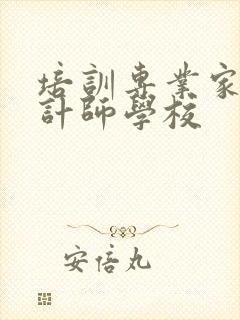 培訓專業家
計師學校
安倍丸